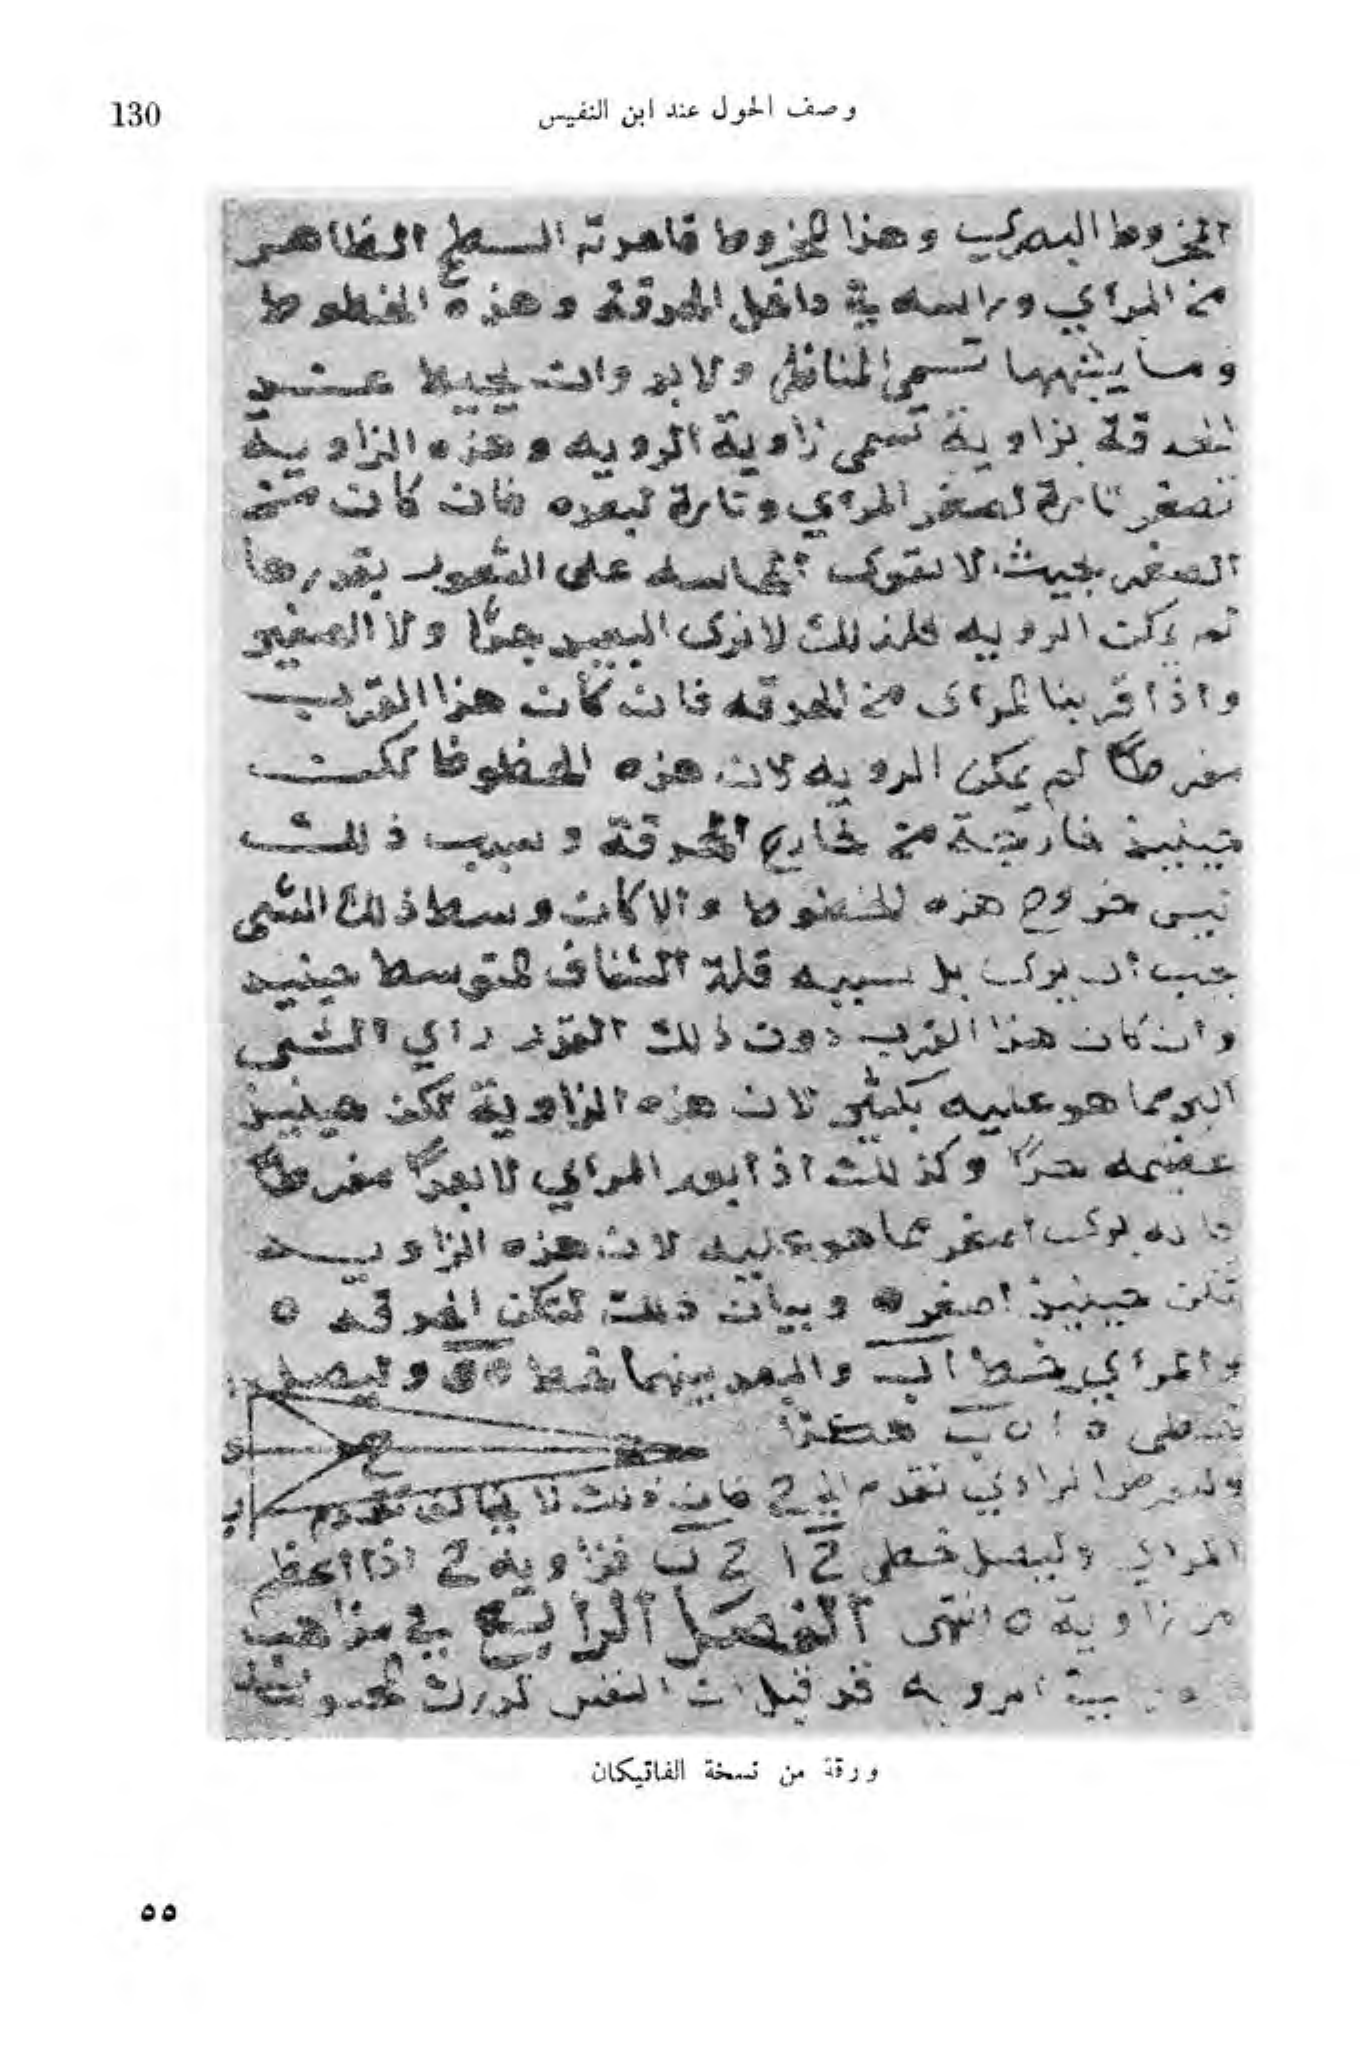 130
وصف الحول عند ابن النفيس
المخروط البصري وهذا المخروط قاعدته السطح الظاهر
من المرأي وراسه في داخل الحدقة وهذه الخطوط
وما بينهما تسمي المناظر ولابد وان يحيط عند
الحدقة بزاوية تسمي زاوية الرويه وهذه الزاوية
تصغر تارة لصغر المرأي وتارة لبعده فان كان من
الصغر بحيث لا تقوي الحاسه على الشعور بقدرها
لم يمكن الرويه فلذلك لا نرى البعيد جدًا ولا الصغير
واذا قربنا المرأى من الحدقه فان كان هذا القرب
مفرطًا لم يمكن الرويه لان هذه الخطوط تكن
حينيذ خارجة من خارج الحدقة وسبب ذلك
ليس خروج هذه الخطوط والا كان وسط ذلك الشي
يجب أن يرى بل سببه قلة الشفاف المتوسط حينيد
وان كان هذا القرب دون ذلك القدر رأي الشي
اكبر مما هو عليه بكثير لان هذه الزاوية تكن حينيذ
عظيمه جدًا وكذلك اذا بعد المرأي لا بعدًا مفرطًا
فانه يرى اصغر مما هو عليه لان هذه الزاويه
تكن حينيذ اصغر ه وبيان ذلك لتكن الحدقه ه
والمرأي خط اب والبعد بينهما خط ه ء وليصل
خطي ه ا ه ب هكذا
ا
ء
ح
ب
ه
ولنفرض المرأي تقدم الي ح فان ذلك لا يخالف تقدم
المرأي وليصل خطي ح ا ح ب فزاوية ح اذا اعظم
من زاوية ه انتهى الفصل الرابع في مذاهب
الرويه قد قيل ان النفس تدرك المحسوسات
ورقة من نسخة الفاتيكان
٥٥